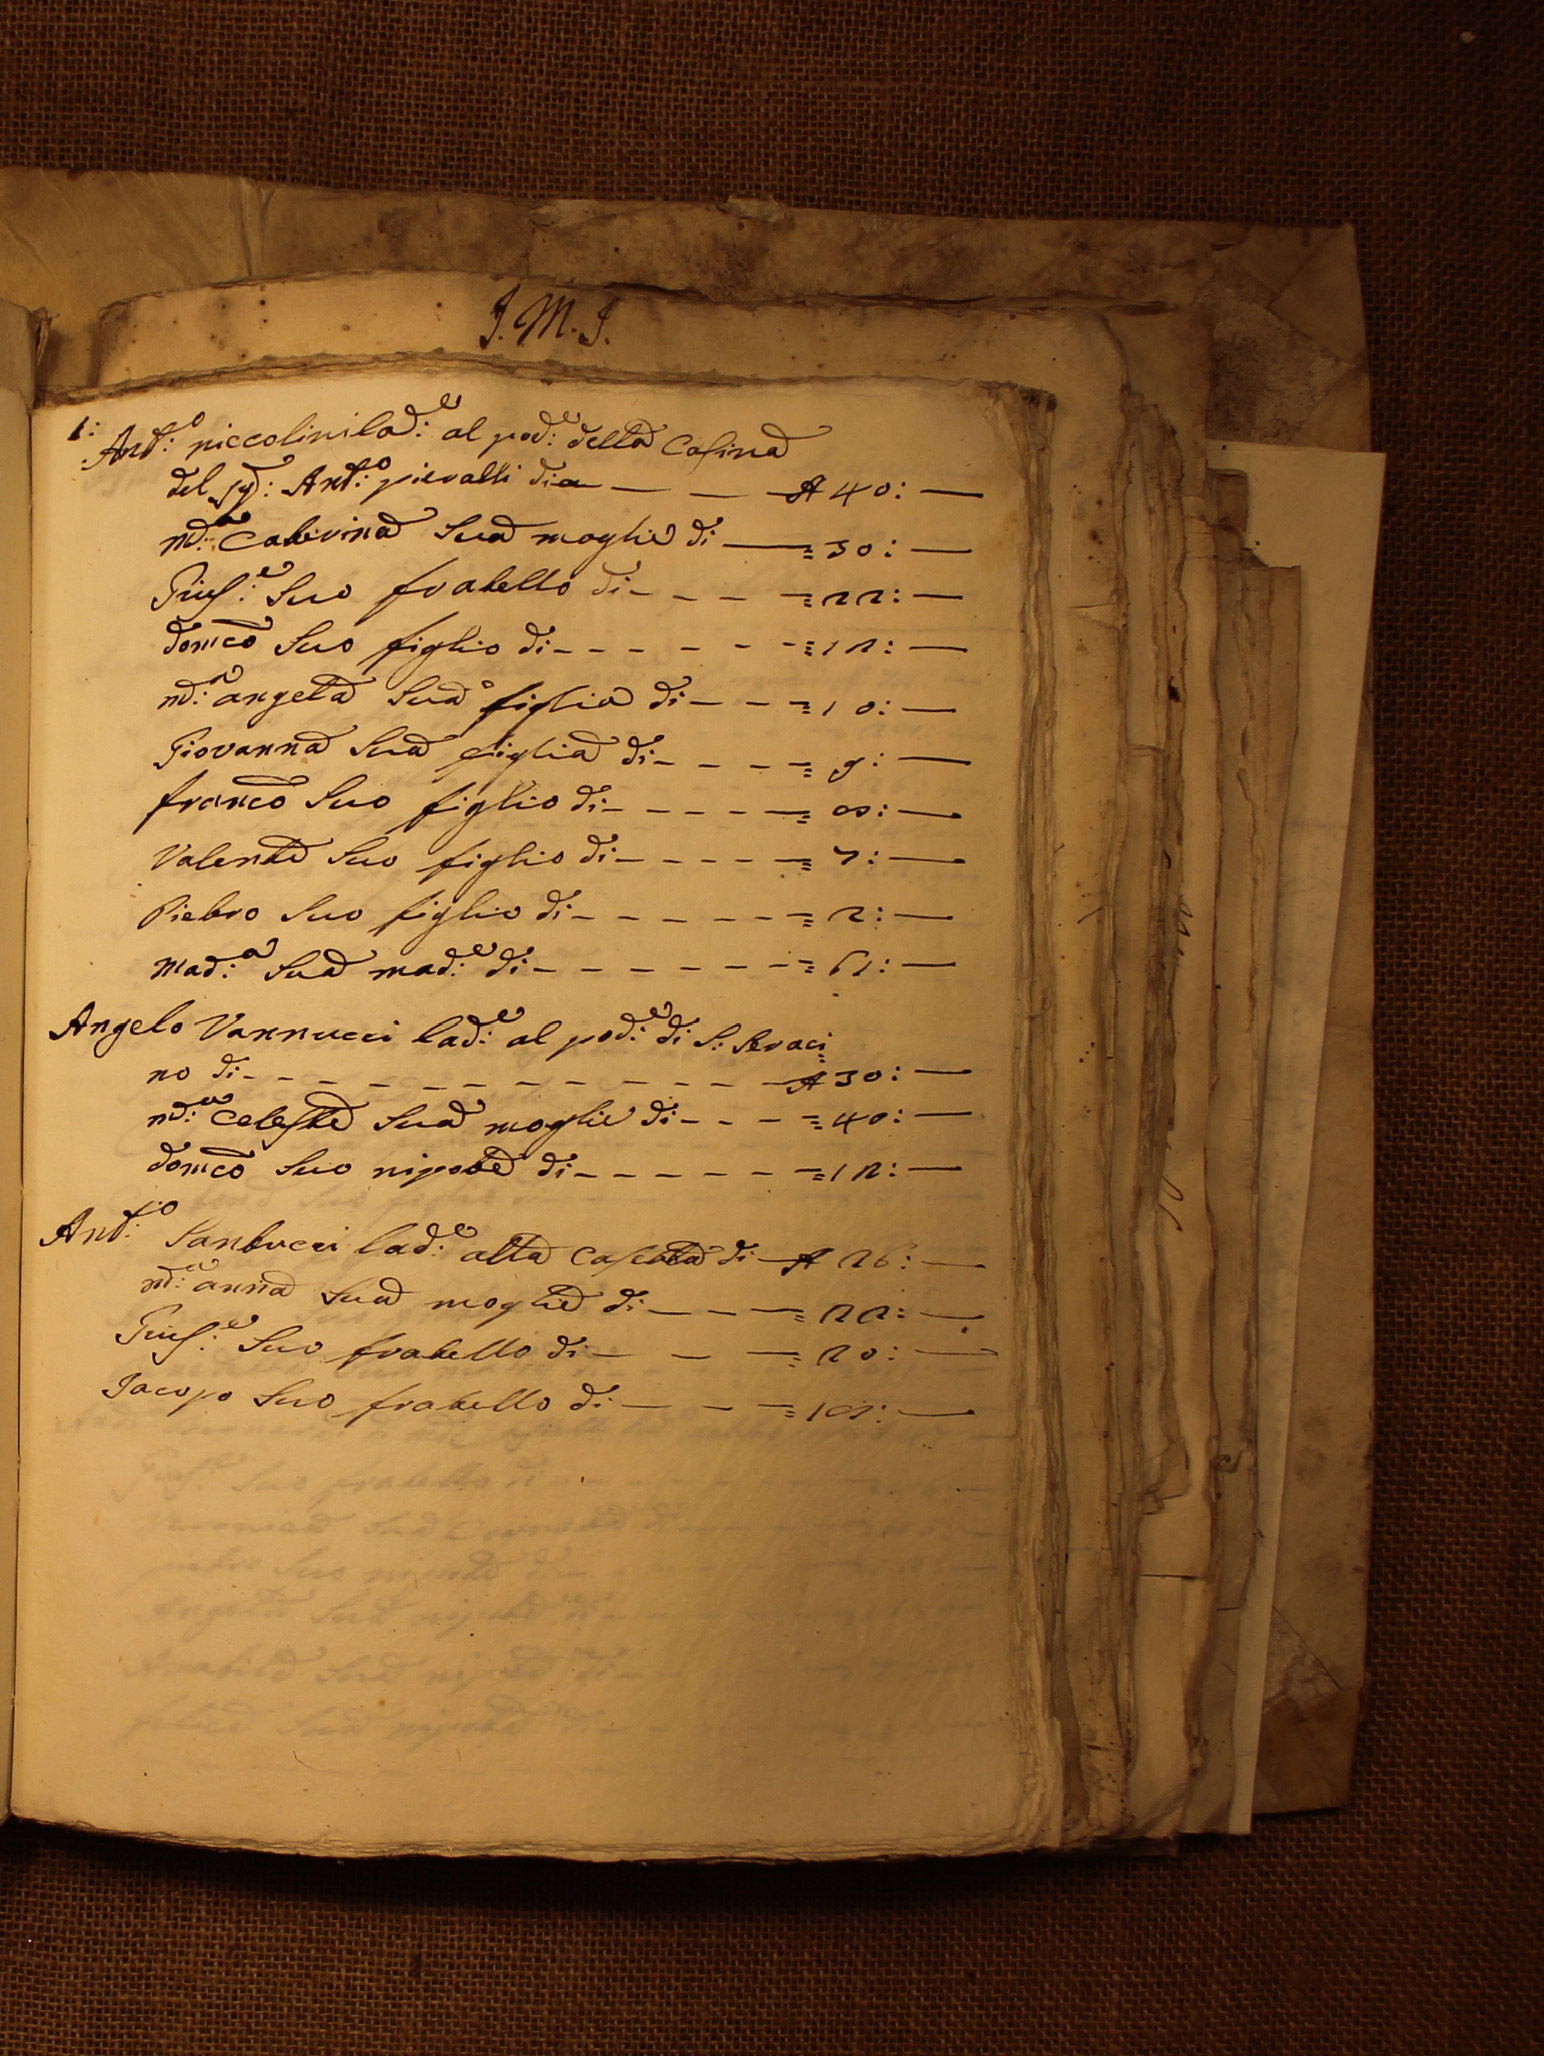 J. M. J.
1:
Ant:o niccolini lad:e al pod:e della Casina
del sg: Ant:o pieralli di A 40:
md:a Caterina sua moglie di = 30:
Gius:e suo fratello di = 22:
domco suo figlio di = 12:
md:a angela sua figlia di = 10:
Giovanna sua figlia di = 9:
franco suo figlio di = 8:
Valente suo figlio di = 7:
Pietro suo figlio di = 2:
mad:a sua mad:e di = 61:
Angelo Vannucci lad:e al pod:e di S: Seraci=
no di A 30:
md:a Celeste sua moglie di = 40:
domco suo nipote di = 12:
Ant:o Santucci lad:e alla di A 26:
md:a anna sua moglie di = 22:
Gius:e suo fratello di = 20:
Jacopo suo fratello di = 18: